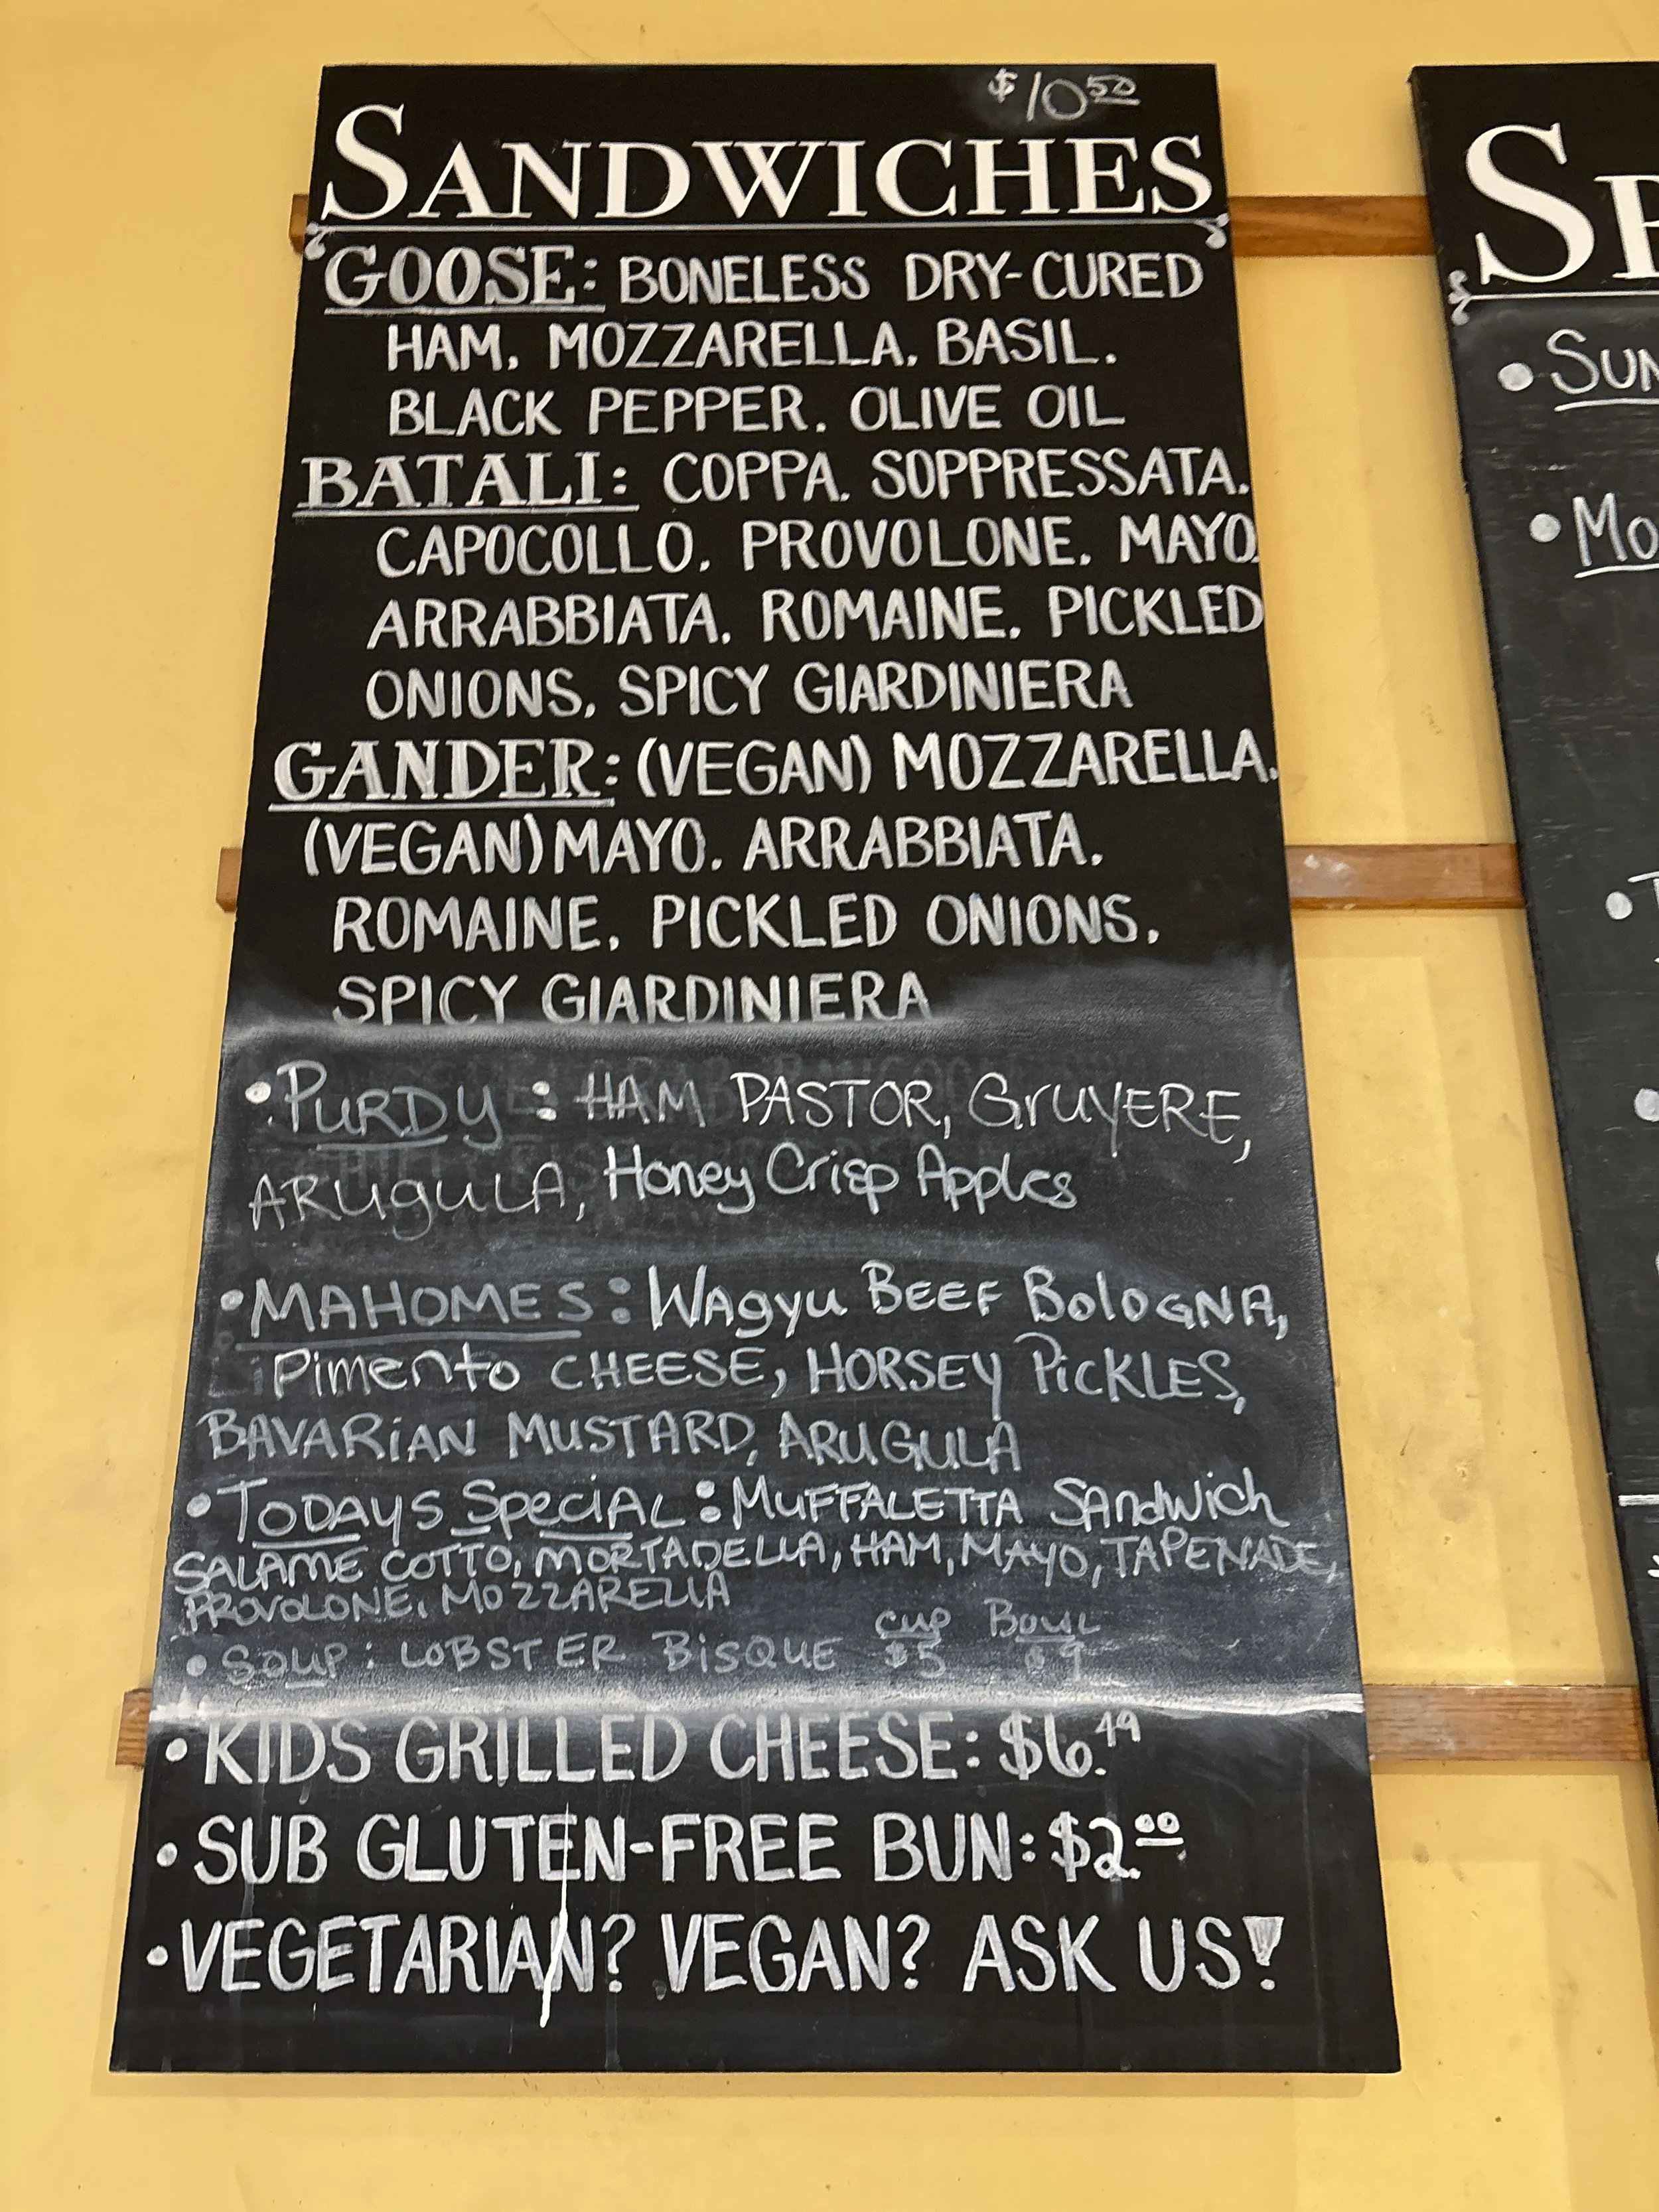 $10.50
SANDWICHES
GOOSE: BONELESS DRY-CURED
HAM. MOZZARELLA. BASIL.
BLACK PEPPER. OLIVE OIL
BATALI: COPPA. SOPPRESSATA.
CAPOCOLLO. PROVOLONE. MAYO.
ARRABBIATA. ROMAINE. PICKLED
ONIONS. SPICY GIARDINIERA
GANDER: (VEGAN) MOZZARELLA.
(VEGAN) MAYO. ARRABBIATA.
ROMAINE. PICKLED ONIONS.
SPICY GIARDINIERA
• PURDY: HAM PASTOR, GrUYERE,
ARUgULA, Honey Crisp Apples
• MAHOMES: WAgyu BEEF BoloGNA,
Pimento CHEESE, HORSEY PiCKLES,
BAVARiAN MUSTARD, ARUGULA
• TODAYS SpeciAL: MUFFALETTA SANdwich
SALAME COTTO, MORTADELLA, HAM, MAYO, TAPENADE,
PROVOLONE, MOZZARELLA
cup Bowl
• Soup: LOBSTER BiSQUE $5 $9
• KIDS GRILLED CHEESE: $6.49
• SUB GLUTEN-FREE BUN: $2.00
• VEGETARIAN? VEGAN? ASK US!
• SUN
• MO